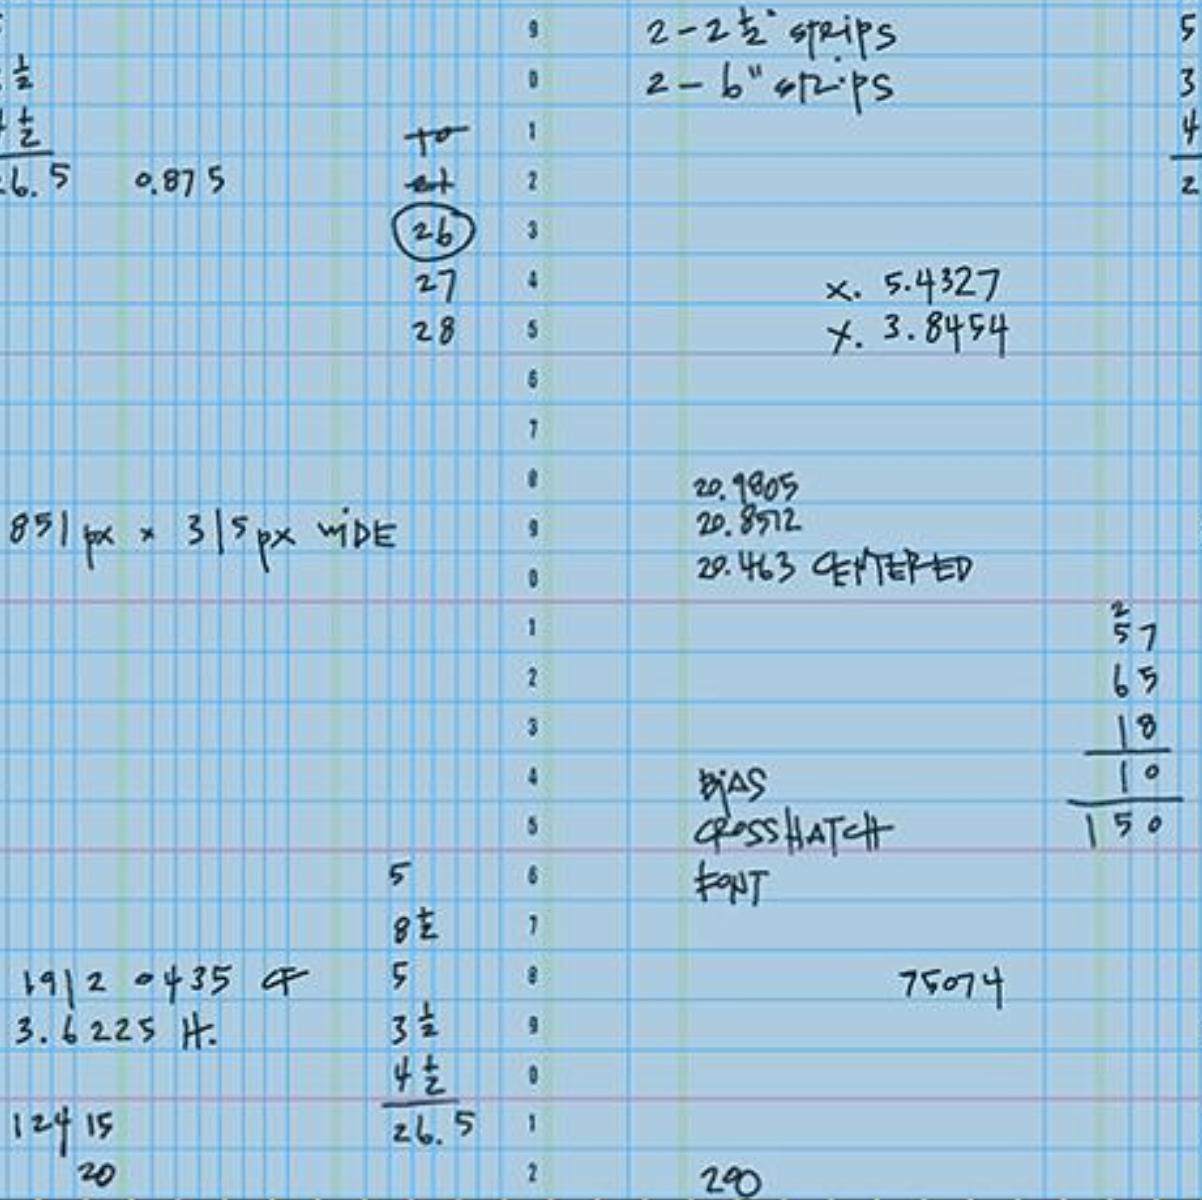 1/2
1/2
26.5 0.875
26
27
28
851 px × 315 px WIDE
1912 0435 CF
3.6225 H.
12415
20
5
8 1/2
5
3 1/2
4 1/2
26.5
9
0
1
2
3
4
5
6
7
8
9
0
1
2
3
4
5
6
7
8
9
0
1
2
2 - 2 1/2" strips
2 - 6" strips
x. 5.4327
y. 3.8454
20.9805
20.8512
20.463 CENTERED
BIAS
CROSSHATCH
FONT
75074
290
5
3
4
2
2
57
65
18
10
150